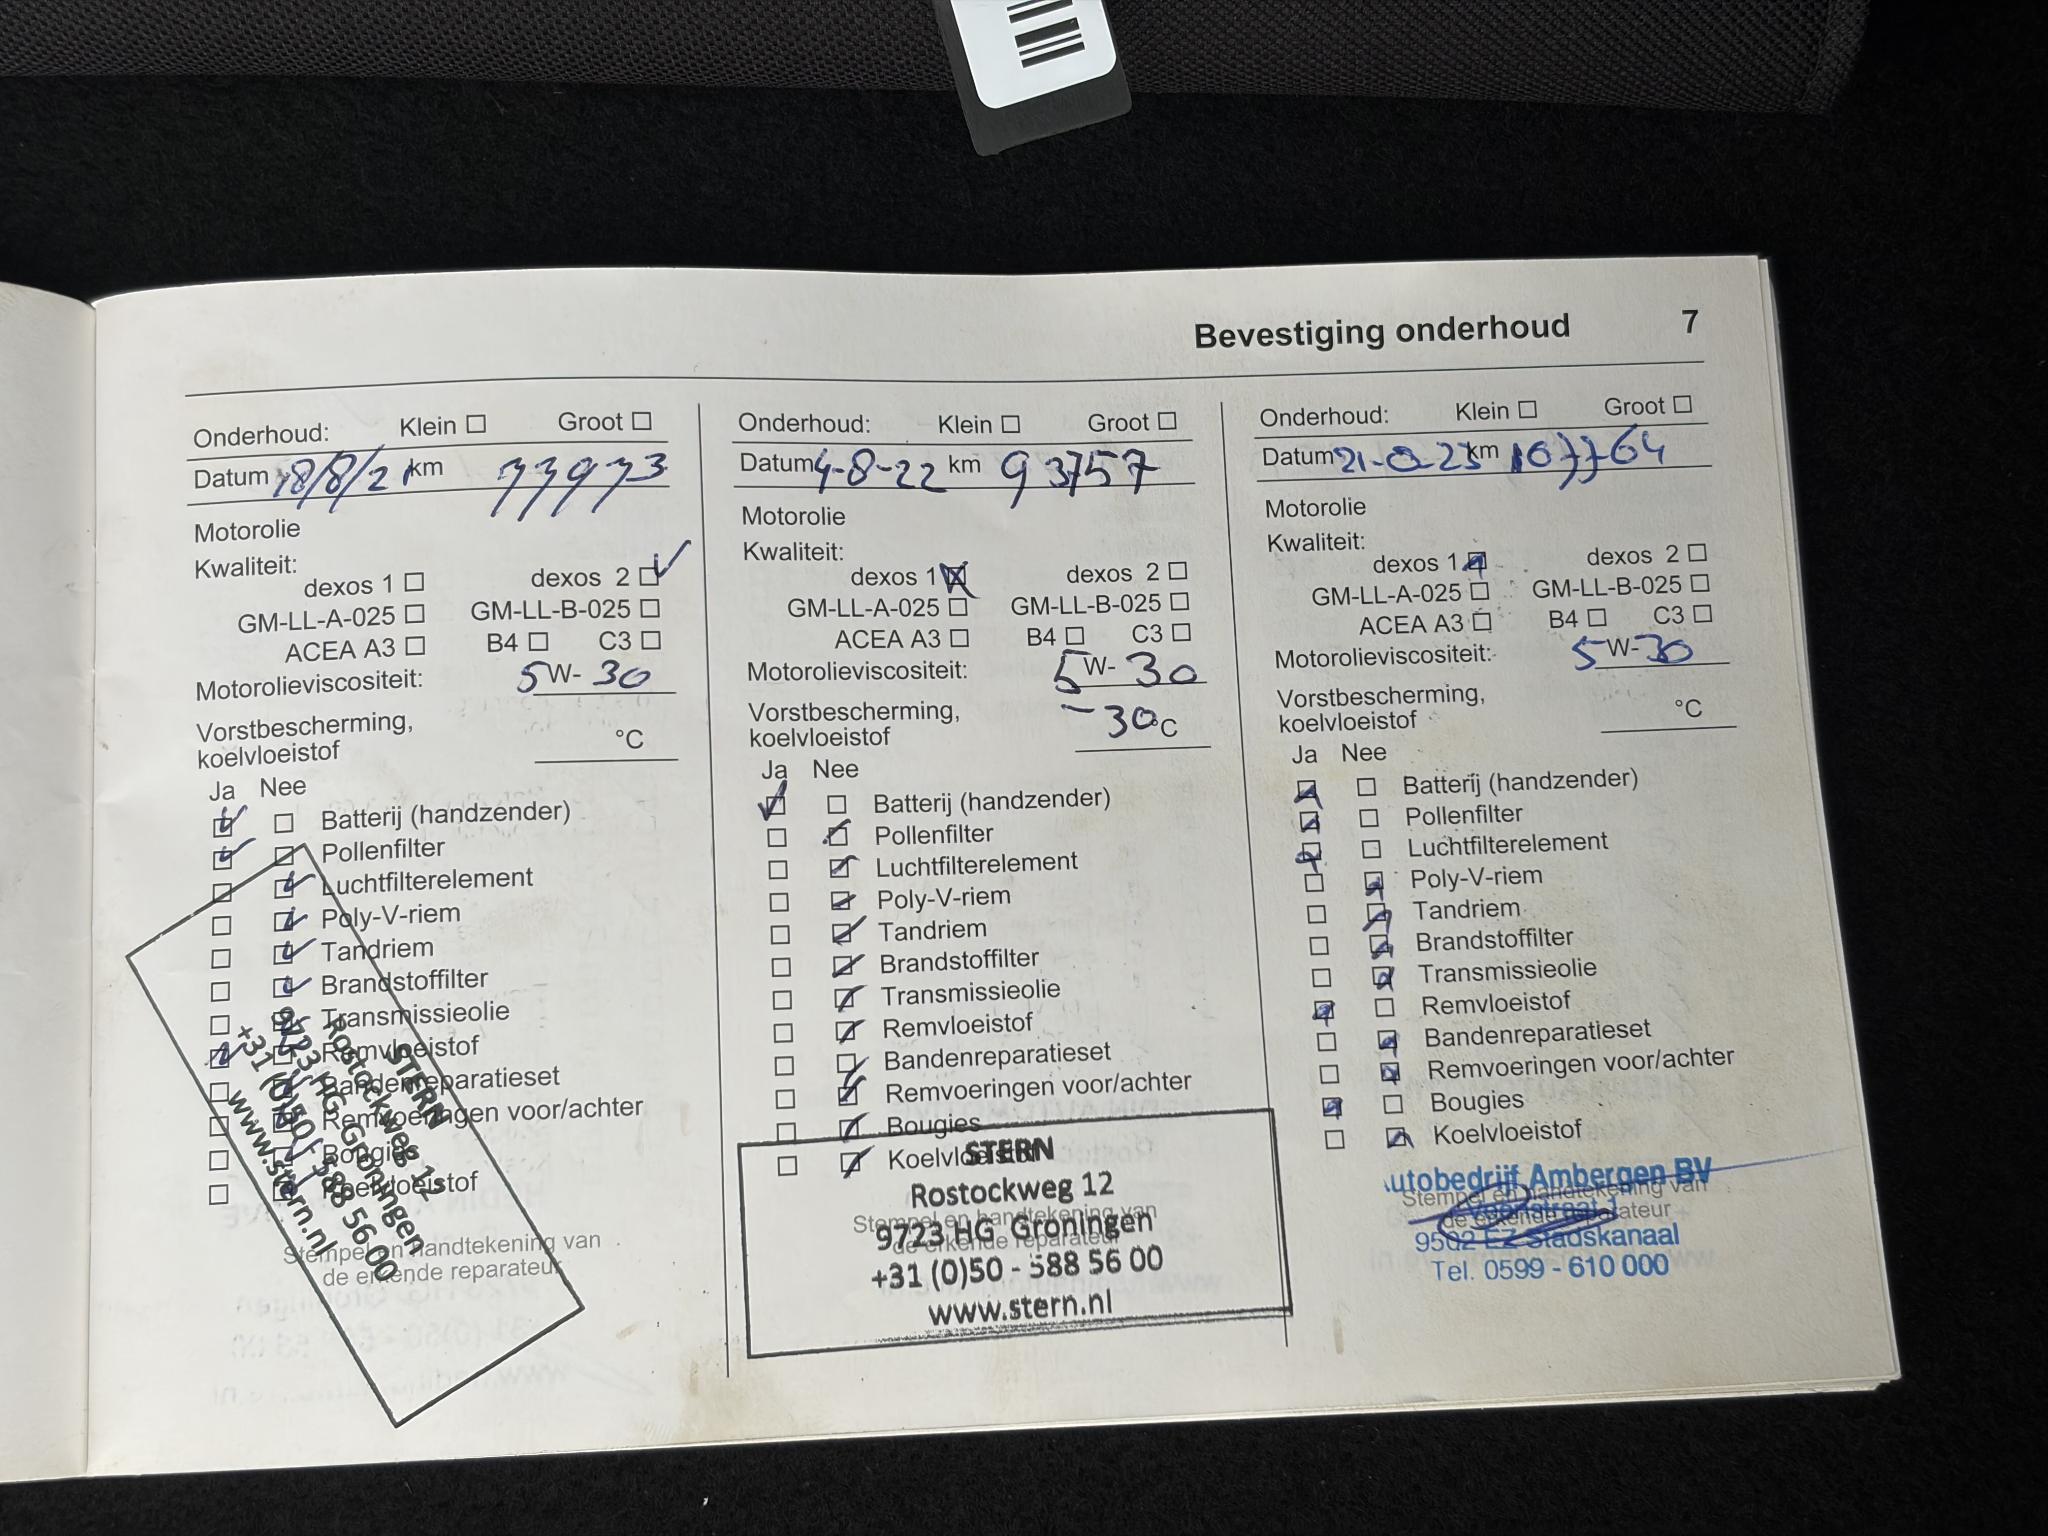 Bevestiging onderhoud 7
Onderhoud: Klein Groot
Datum 18/8/21 km 77973
Motorolie
Kwaliteit:
dexos 1 dexos 2
GM-LL-A-025 GM-LL-B-025
ACEA A3 B4 C3
Motorolieviscositeit: 5 W- 30
Vorstbescherming,
koelvloeistof °C
Ja Nee
Batterij (handzender)
Pollenfilter
Luchtfilterelement
Poly-V-riem
Tandriem
Brandstoffilter
Transmissieolie
Remvloeistof
Bandenreparatieset
Remvoeringen voor/achter
Bougies
Koelvloeistof
Stempel en handtekening van
de erkende reparateur
STERN
Rostockweg 12
9723 HG Groningen
+31 (0)50 - 588 56 00
www.stern.nl
Onderhoud: Klein Groot
Datum 4-8-22 km 93757
Motorolie
Kwaliteit:
dexos 1 dexos 2
GM-LL-A-025 GM-LL-B-025
ACEA A3 B4 C3
Motorolieviscositeit: 5 W- 30
Vorstbescherming,
koelvloeistof -30 °C
Ja Nee
Batterij (handzender)
Pollenfilter
Luchtfilterelement
Poly-V-riem
Tandriem
Brandstoffilter
Transmissieolie
Remvloeistof
Bandenreparatieset
Remvoeringen voor/achter
Bougies
Koelvloeistof
Stempel en handtekening van
de erkende reparateur
STERN
Rostockweg 12
9723 HG Groningen
+31 (0)50 - 588 56 00
www.stern.nl
Onderhoud: Klein Groot
Datum km
Motorolie
Kwaliteit:
dexos 1 dexos 2
GM-LL-A-025 GM-LL-B-025
ACEA A3 B4 C3
Motorolieviscositeit: 5 W- 30
Vorstbescherming,
koelvloeistof °C
Ja Nee
Batterij (handzender)
Pollenfilter
Luchtfilterelement
Poly-V-riem
Tandriem
Brandstoffilter
Transmissieolie
Remvloeistof
Bandenreparatieset
Remvoeringen voor/achter
Bougies
Koelvloeistof
Stempel en handtekening van
de erkende reparateur
utobedrijf Ambergen BV
Veenstraat 1
9502 EZ Stadskanaal
Tel. 0599 - 610 000